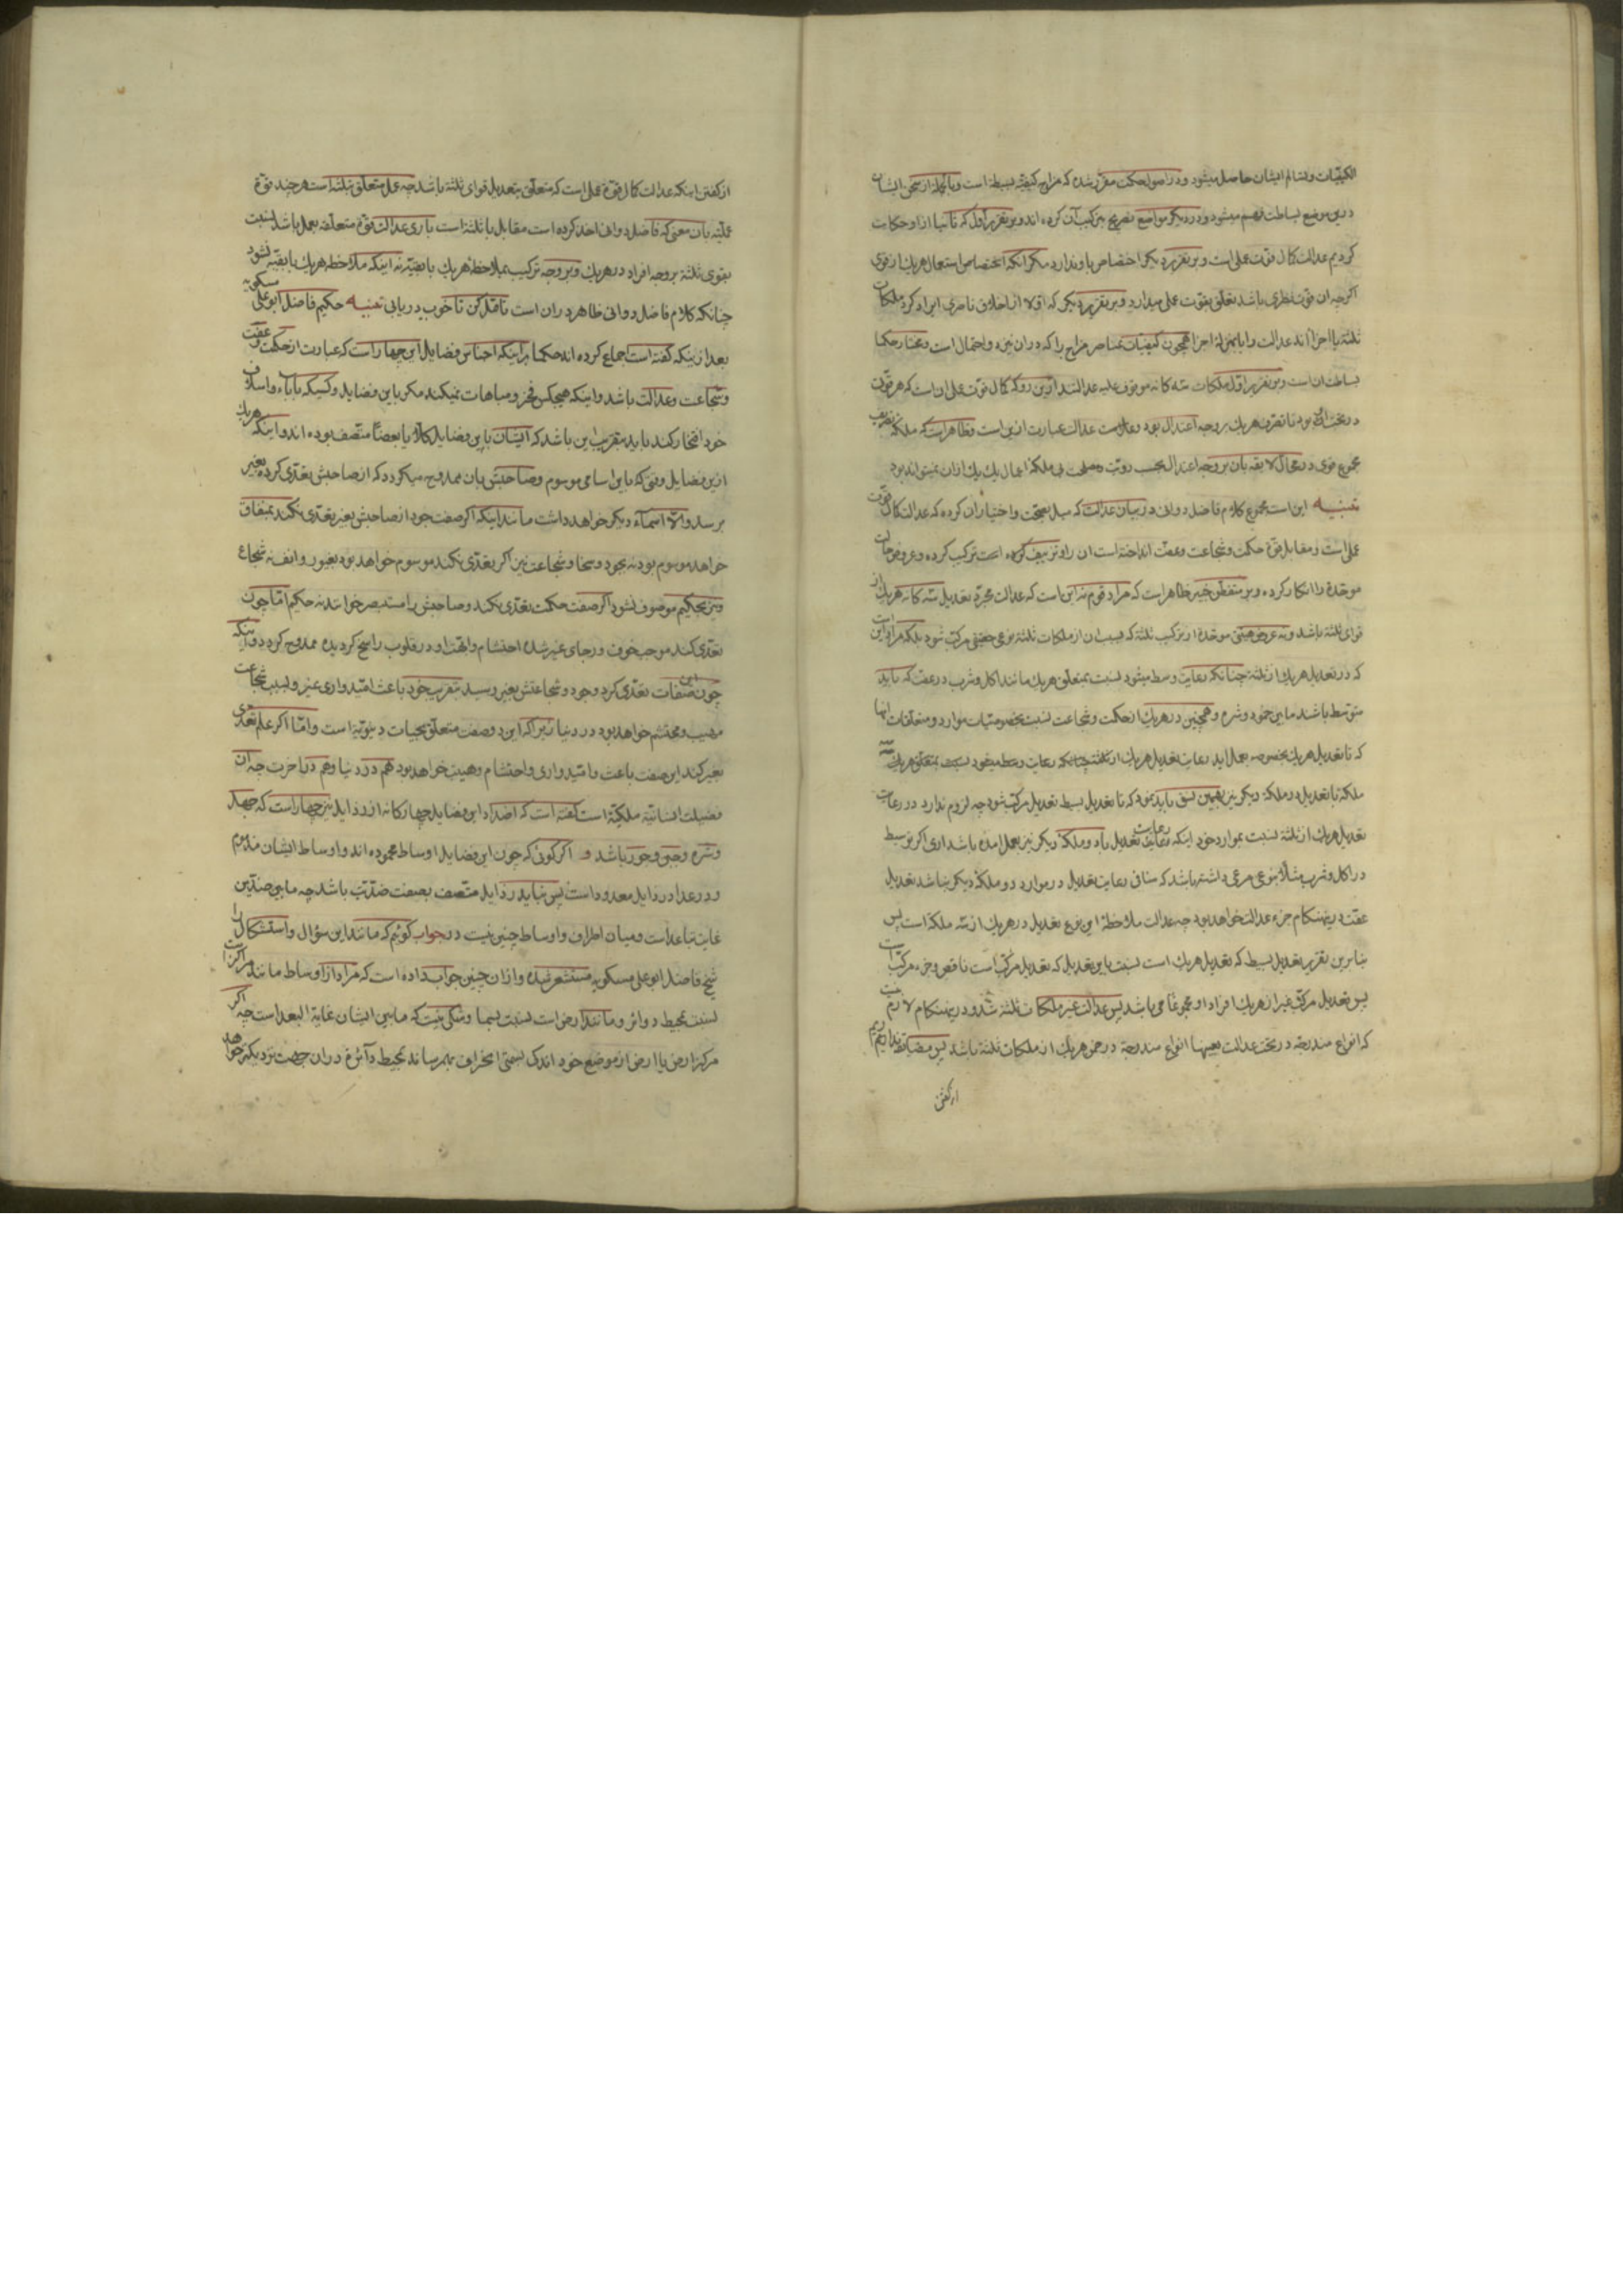 الکیفیات و تسالم ایشان حاصل میشود و در اصول حکمت مقرر شده که مزاج کیفیة بسیطه است و بالجمله از سخن ایشان
درین موضع بساطت فهم میشود و در دیکر مواضع تصریح بترکیب آن کرده اند و بر تقریر اول که ثانیا ازو حکایت
کردیم عدالت کمال قوت عملی است و بر تقریر دیکر اختصاص باو ندارد مکر انکه اختصاص استعمال هر یک از قوی
اکرچه ان قوت نظری باشد تعلق بقوت عملی میدارد و بر تقریر دیکر که اولا از اخلاق ناصری ایراد کرد ملکات
ثلثه یا اجزا اند عدالت را یا بمنزله اجزا همچون کیفیات عناصر مزاج را که دران نیز دو احتمال است و مختار حکما
بساطت ان است و بر تقریر اول ملکات سه کانه موقوف علیه عدالتند ازین رو که کمال قوت عملی ان است که هر قوت
در تحت او بود تا تصرف هر یک بر وجه اعتدال بود و عدالت عبارت ازین است و ظاهر است که ملکه تصریف
مجموع قوی در محال لایقه بان بر وجه اعتدال بحسب رویت و مصلحت بی ملکه اعمال یک یک ازان نمیتواند بود
تنبیه این است مجموع کلام فاضل دوانی در بیان عدالت که میل بصحت و اختیار ان کرده که عدالت کمال قوت
عملی است و مقابل قوة حکمت و شجاعت و عفت انداخته است ان را و تزییف کرده است ترکیب کرده و عروض حالت
موحده را انکار کرده و بر متفطن خبیر ظاهر است که مراد قوم نه این است که عدالت مجرد تعدیل سه کانه هر یک از
قوای ثلثه باشد و نه عروض هیئتی موحده از ترکیب ثلثه که بسبب ان از ملکات ثلثه نوعی حقیقی مرکب شود بلکه مراد این است
که در تعدیل هر یک از ثلثه چنانکه رعایت وسط میشود نسبت بمتعلق هر یک مانند اکل و شرب در عفت که باید
متوسط باشند مابین خمود و شره و همچنین در هر یک از حکمت و شجاعت نسبت بخصوصیات موارد و متعلقات انها
که تا تعدیل هر یک بخصوصه بعمل اید رعایت تعدیل هر یک از ثلثه چنانکه رعایت وسط میشود نسبت بمتعلق هر یک
ملکه با تعدیل دو ملکه دیکر نیز بهمین نسق باید نمود که تا تعدیل بسیط تعدیل مرکب شود چه لزوم ندارد در رعایت
تعدیل هر یک از ثلثه نسبت بموارد خود اینکه رعایت تعدیل باد و ملکه دیکر نیز بعمل امده باشد اری اکر توسط
در اکل و شرب مثلا بنوعی مرعی داشته باشد که منافی رعایت تعدیل در موارد دو ملکه دیکر نباشد تعدیل
عفت درینهنکام جزء عدالت خواهد بود چه عدالت ملاحظه این نوع تعدیل در هر یک از سه ملکه است پس
بنابرین تقریر تعدیل بسیط که تعدیل هر یک است نسبت باین تعدیل که تعدیل مرکب است ناقص و جزء مرکب است
پس تعدیل مرکب غیر از هر یک افراد او مجموعا می باشد پس عدالت غیر ملکات ثلثه شد و درینهنکام لازم نیست
که انواع مندرجه در تحت عدالت بعینها انواع مندرجه در ضمن هر یک از ملکات ثلثه باشد پس مضایقه نداریم
از کفتن
از کفتن اینکه عدالت کمال قوة عملی است که متعلق بتعدیل قوای ثلثه باشد چه عمل متعلق بثلثه است هر چند قوة
عملیه بان معنی که فاضل دوانی اخذ کرده است مقابل با ثلثه است باری عدالت قوة متعلقه بعمل باشد نسبت
بقوی ثلثه بر وجه افراد در هر یک و بر وجه ترکیب بملاحظه هر یک با بقیه نه اینکه ملاحظه هر یک با بقیه نشود
چنانکه کلام فاضل دوانی ظاهر دران است تامل کن تا خوب دریابی تنبیه حکیم فاضل ابو علی مسکویه
بعد ازینکه کفته است اجماع کرده اند حکما بر اینکه اجناس فضایل این چهار است که عبارت از حکمت و عفت
و شجاعت و عدالت باشد و اینکه هیچکس فخر و مباهات نمیکند مکر باین فضایل و کسیکه باباء و اسلاف
خود افتخار کند باید بتقریب این باشد که ایشان باین فضایل کلا یا بعضا متصف بوده اند و اینکه هر یک
ازین فضایل وقتی که باین اسامی موسوم و صاحبش بان ممدوح میکردد که از صاحبش تعدی کرده بغیر
برسد و الا اسماء دیکر خواهد داشت مانند اینکه اکر صفت جود از صاحبش بغیر تعدی نکند بمنفاق
خواهد موسوم بود نه بجود و سخا و شجاعت نیز اکر تعدی نکند موسوم خواهد بود بغیور و انف نه شجاع
و نیز بحکیم موصوف نشود اکر صفت حکمت تعدی نکند و صاحبش را مستبصر خوانند نه حکیم اما چون
تعدی کند موجب خوف و رجای غیر شده احتشام و ابهت او در قلوب راسخ کردیده ممدوح کردد و اینکه
چون این صفات تعدی کرد و جود و شجاعتش بغیر رسید بتقریب خود باعث امیدواری غیر و بسبب شجاعت
مهیب و محتشم خواهد بود در دنیا زیرا که این دو صفت متعلق بحیات دنیویه است و اما اکر علم تعدی
بغیر کند این صفت باعث امیدواری و احتشام و هیبت خواهد بود هم در دنیا و هم در اخرت چه ان
فضیلت انسانیه ملکیه است کفته است که اضداد این فضایل چهارکانه از رذایل نیز چهار است که جهل
و شره و جبن و جور باشد و اکر کوئی که چون این فضایل اوساط محموده اند و اوساط ایشان مذموم
و در عداد رذایل معدود است پس نباید رذایل متصف بصفت ضدیت باشد چه مابین ضدین
غایت تباعد است و میان اطراف و اوساط چنین نیست در جواب کوئیم که مانند این سؤال و استشکال را
شیخ فاضل ابو علی مسکویه مستشعر شده و ازان چنین جواب داده است که مراد از اوساط مانند مرکز است
نسبت بمحیط دوائر و مانند ارض است نسبت بسما و شکی نیست که مابین ایشان غایة البعد است چه اکر
مرکز ارض یا ارض از موضع خود اندک بسمتی انحراف بهم رساند بمحیط دائره دران جهت نزدیکتر خواهد